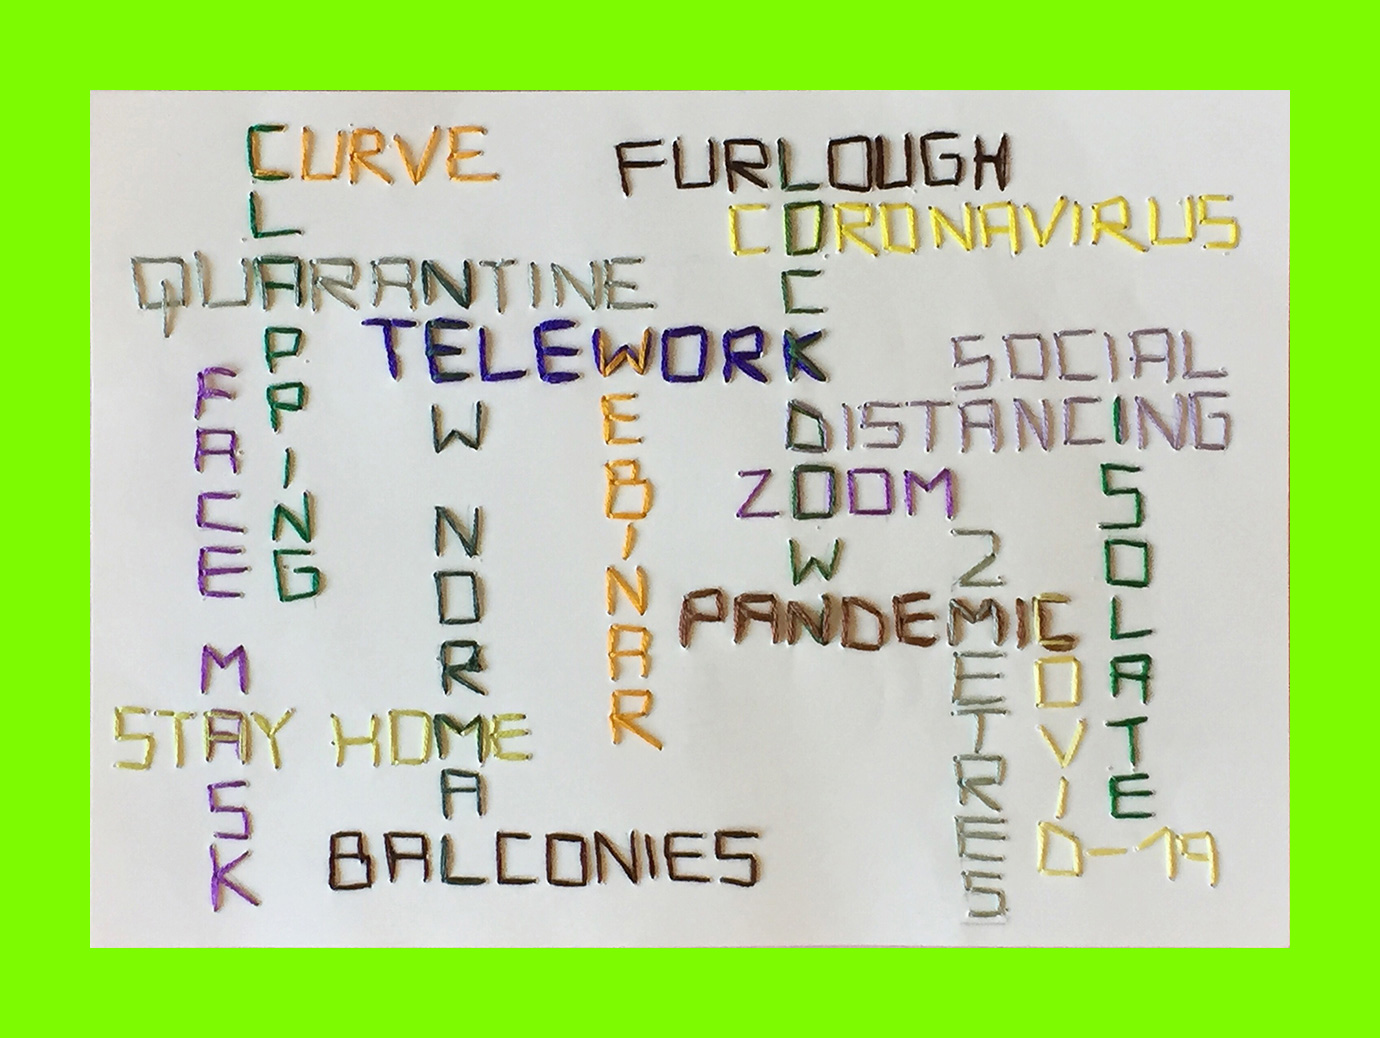 CURVE
FURLOUGH
CLAPPING
LOCKDOWN
CORONAVIRUS
QUARANTINE
NEW NORMAL
TELEWORK
WEBINAR
SOCIAL
DISTANCING
FACE MASK
ISOLATE
ZOOM
2 METRES
PANDEMIC
COVID-19
STAY HOME
BALCONIES